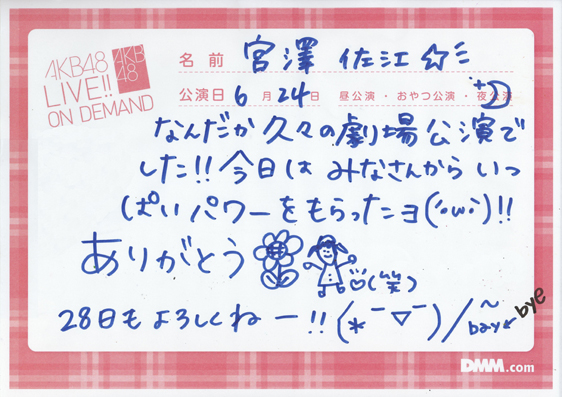 AKB48
LIVE!!
ON DEMAND
AKB
48
名前 宮澤 佐江☆ミ
公演日 6月24日 昼公演・おやつ公演・夜公演
なんだか久々の劇場公演で
した!!今日はみなさんからいっ
ぱいパワーをもらったョ(´ω`)!!
ありがとう
(笑)
28日もよろしくねー!!(*¯▽¯)/~
bay←bye
DMM.com